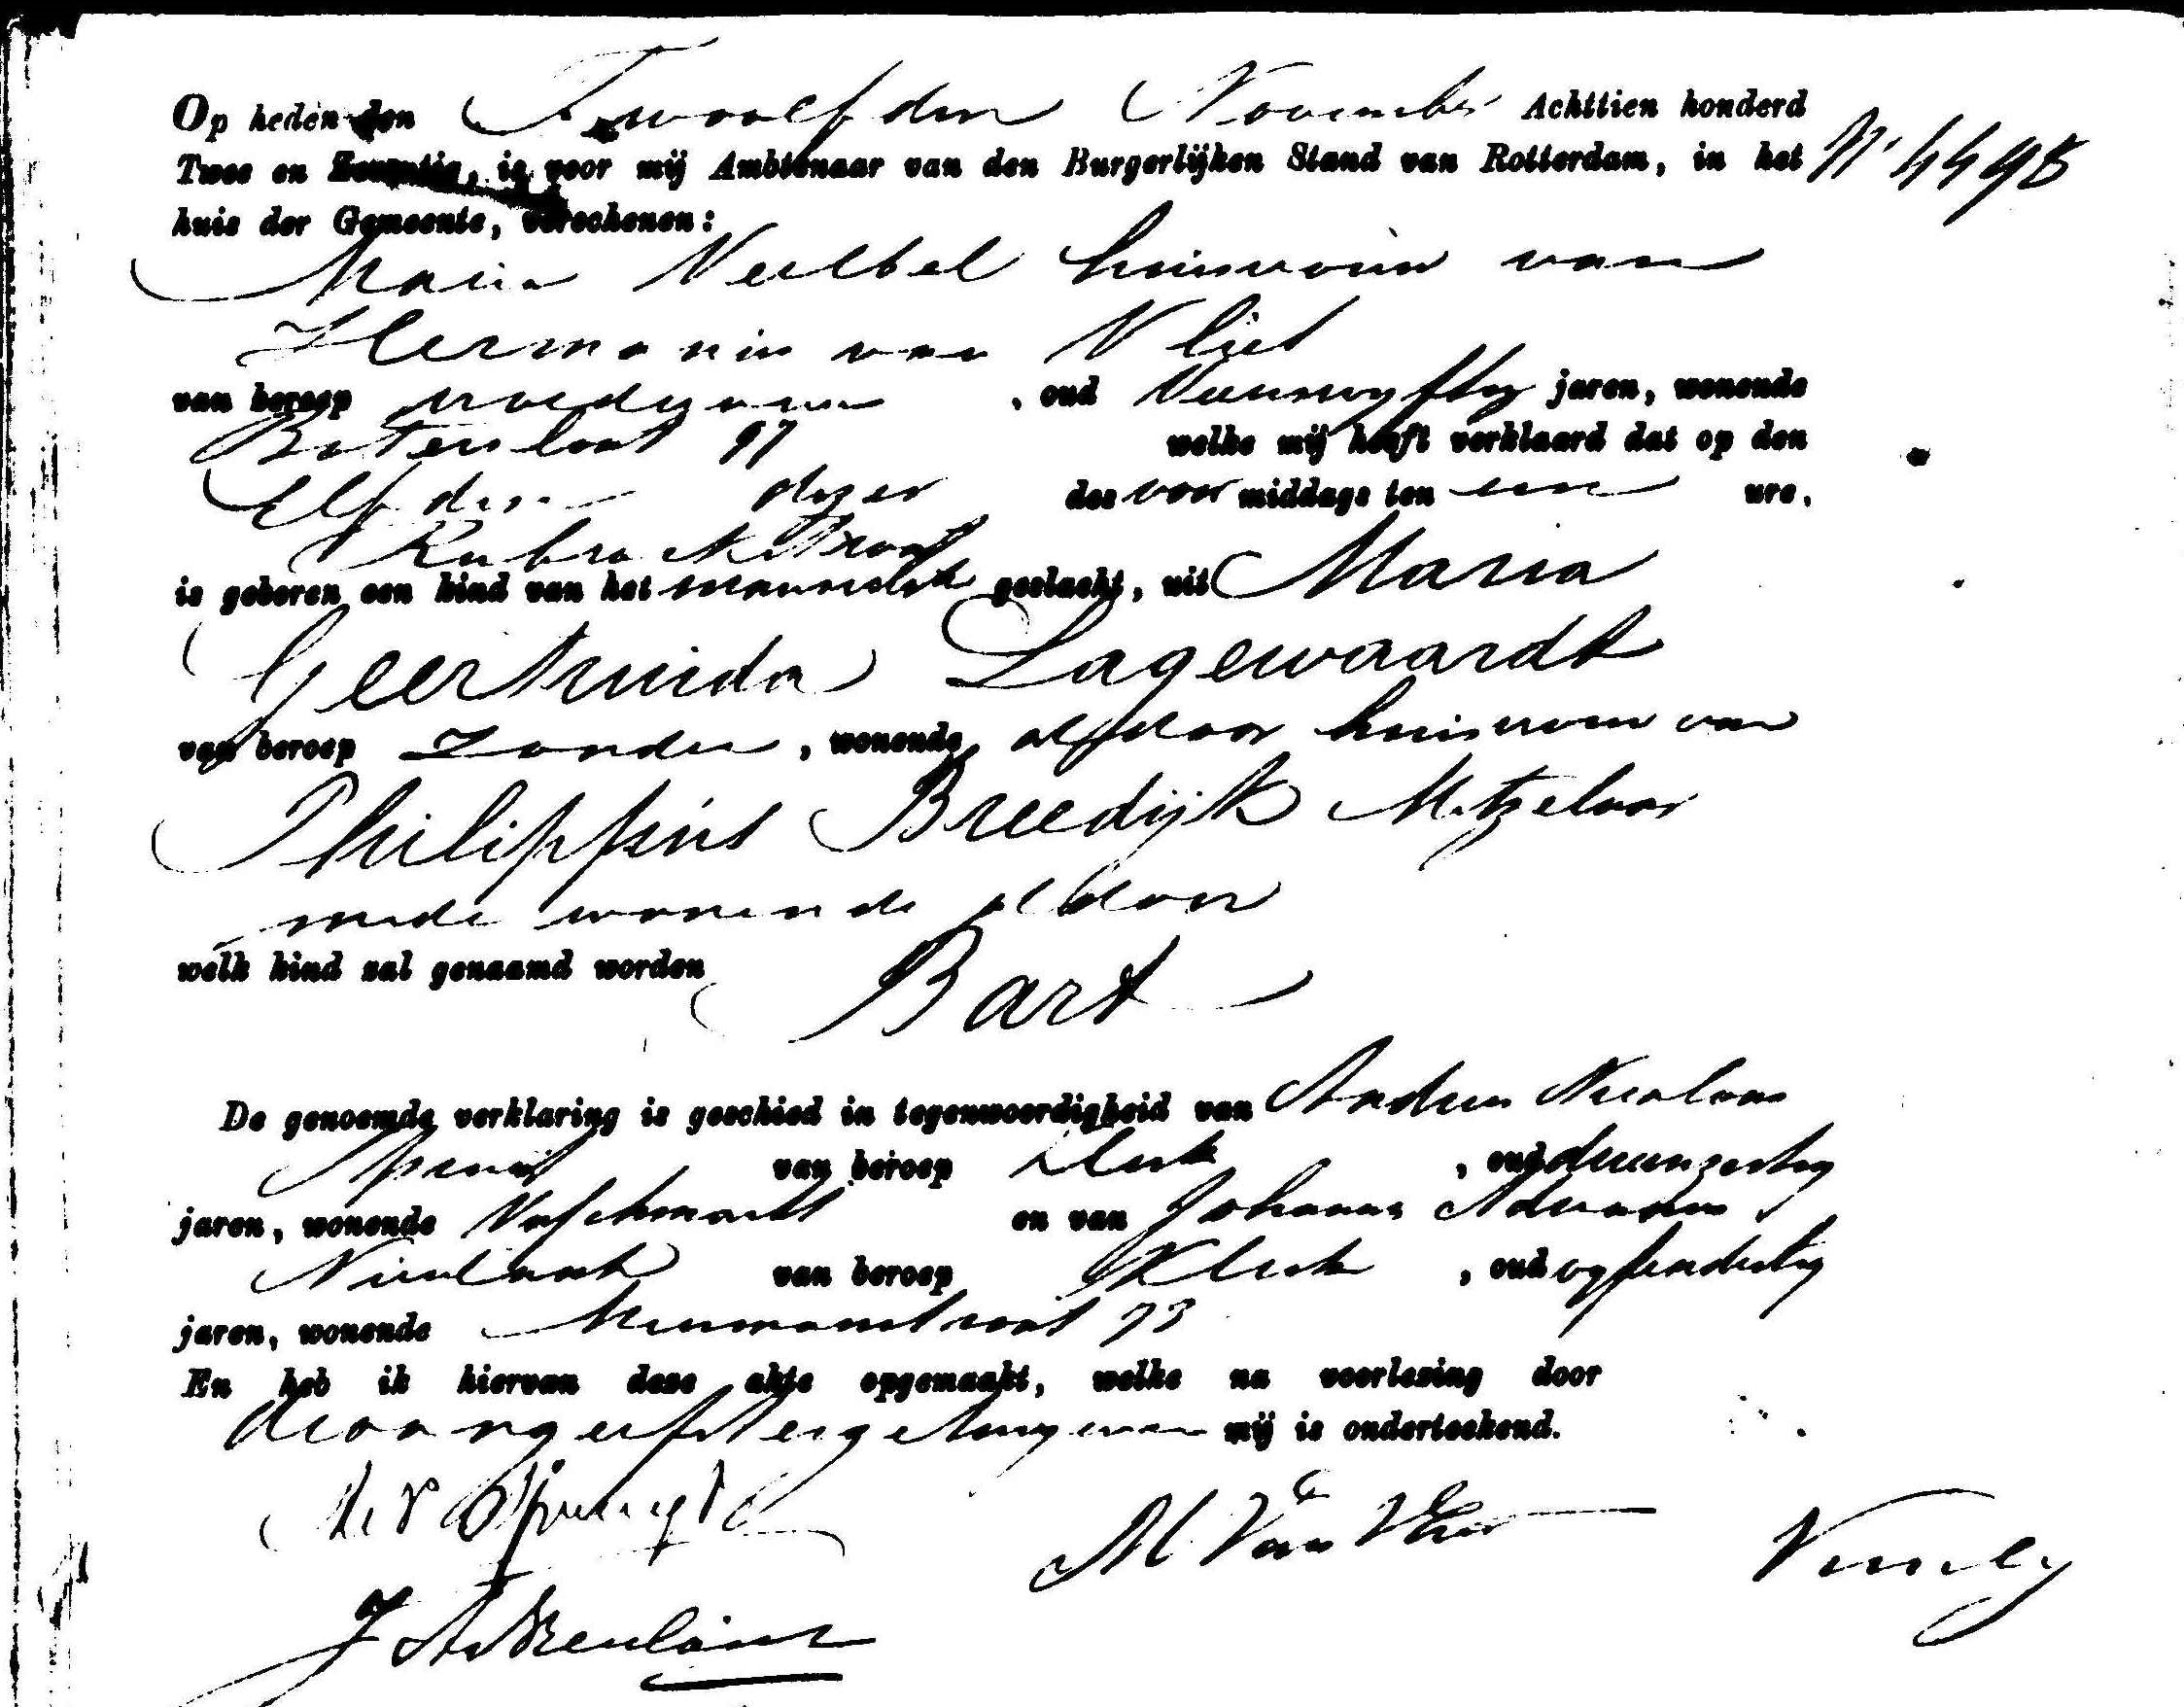 Op heden den Twaalfden November Achttien honderd
Twee en Zeventig, is voor mij Ambtenaar van den Burgerlijken Stand van Rotterdam, in het
huis der Gemeente, verschenen:
Maria huisvrouw van
Hermanus van Vliet
van beroep vroedvrouw, oud jaren, wonende
Botersloot 97 welke mij heeft verklaard dat op den
Elfden dezer des voor middags ten een ure,
is geboren een kind van het mannelijk geslacht, uit Maria
Geertruida Lagewaardt
van beroep Zonder, wonende aldaar huisvrouw van
Philippus Breedijk Metzelaar
mede wonende aldaar
welk kind zal genaamd worden
Bart
De genoemde verklaring is geschied in tegenwoordigheid van Andries Nicolaas
van beroep klerk, oud drieenzestig
jaren, wonende en van Johannes Adrianus
van beroep Klerk, oud vyfendertig
jaren, wonende
En heb ik hiervan deze akte opgemaakt, welke na voorlezing door
mij is onderteekend.
M Van Vliet